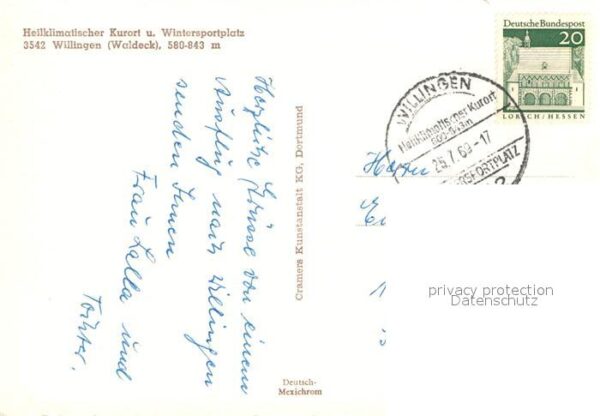 Heilklimatischer Kurort u. Wintersportplatz
3542 Willingen (Waldeck), 580-843 m
Herzliche Grüsse von einem
Ausflug nach Willingen
senden Ihnen
Frau Lalla und
Tochter.
Cramers Kunstanstalt KG, Dortmund
Deutsch-
Mexichrom
Deutsche Bundespost
20
LORSCH/HESSEN
WILLINGEN
Heilklimatischer Kurort
25.7.69-17
privacy protection
Datenschutz